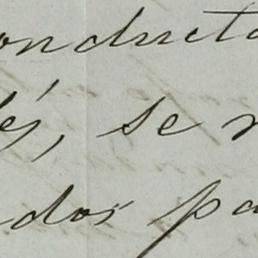 onducto
és, se r
dos pa